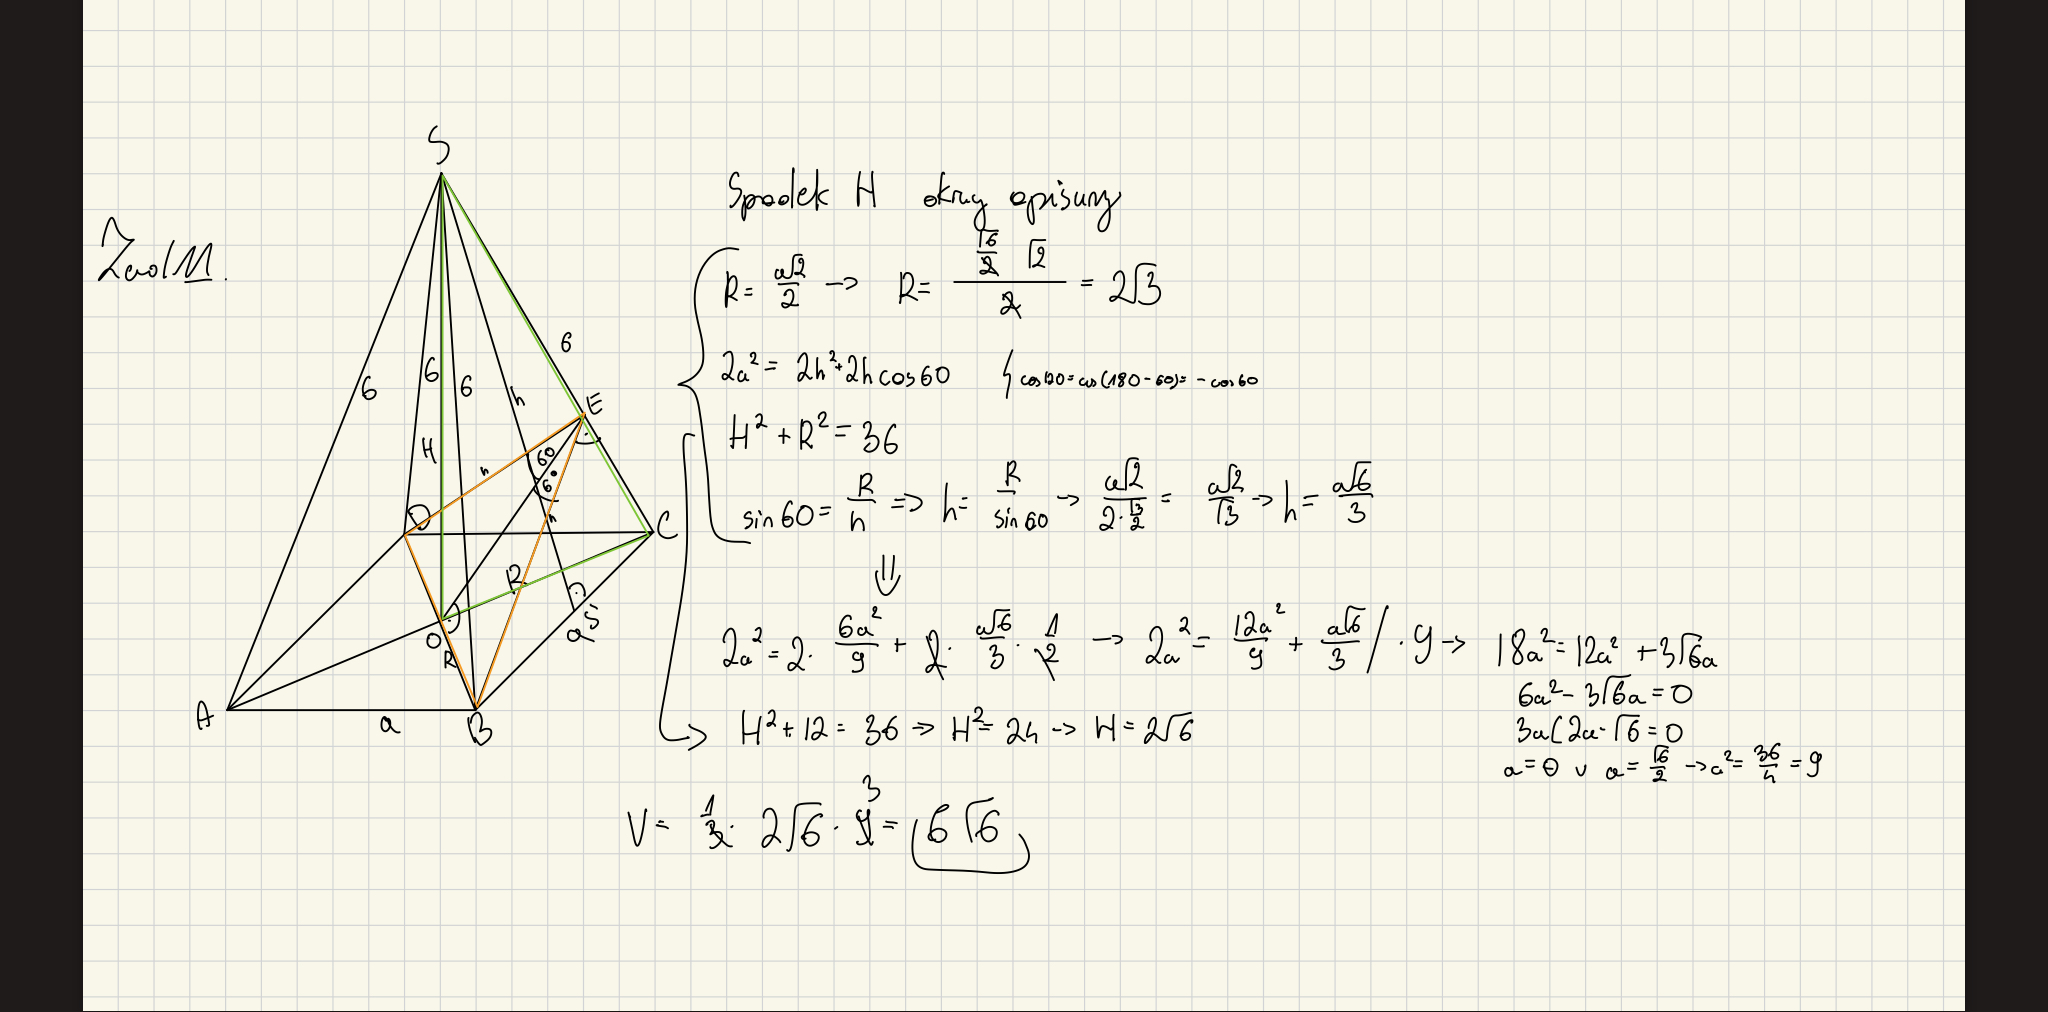 Zad 11.
S
6
6
6
6
h
E
H
h
60
60
h
D
C
R
O
R
S
a
A
a
B
Spodek H okrąg opisany
R = a√2/2 -> R = (√6/2 √2)/2 = 2√3
2a² = 2h² + 2h cos60 { cos120 = cos(180 - 60) = - cos60
H² + R² = 36
sin60 = R/h => h = R/sin60 -> a√2/(2·√3/2) = a√2/√3 -> h = a√6/3
⇓
2a² = 2 · 6a²/9 + 2 · a√6/3 · 1/2 -> 2a² = 12a²/9 + a√6/3 / · 9 -> 18a² = 12a² + 3√6a
6a² - 3√6a = 0
3a(2a - √6 = 0
a = 0 v a = √6/2 -> a² = 36/4 = 9
H² + 12 = 36 => H² = 24 -> H = 2√6
V = 1/3 · 2√6 · 9 3 = 6√6